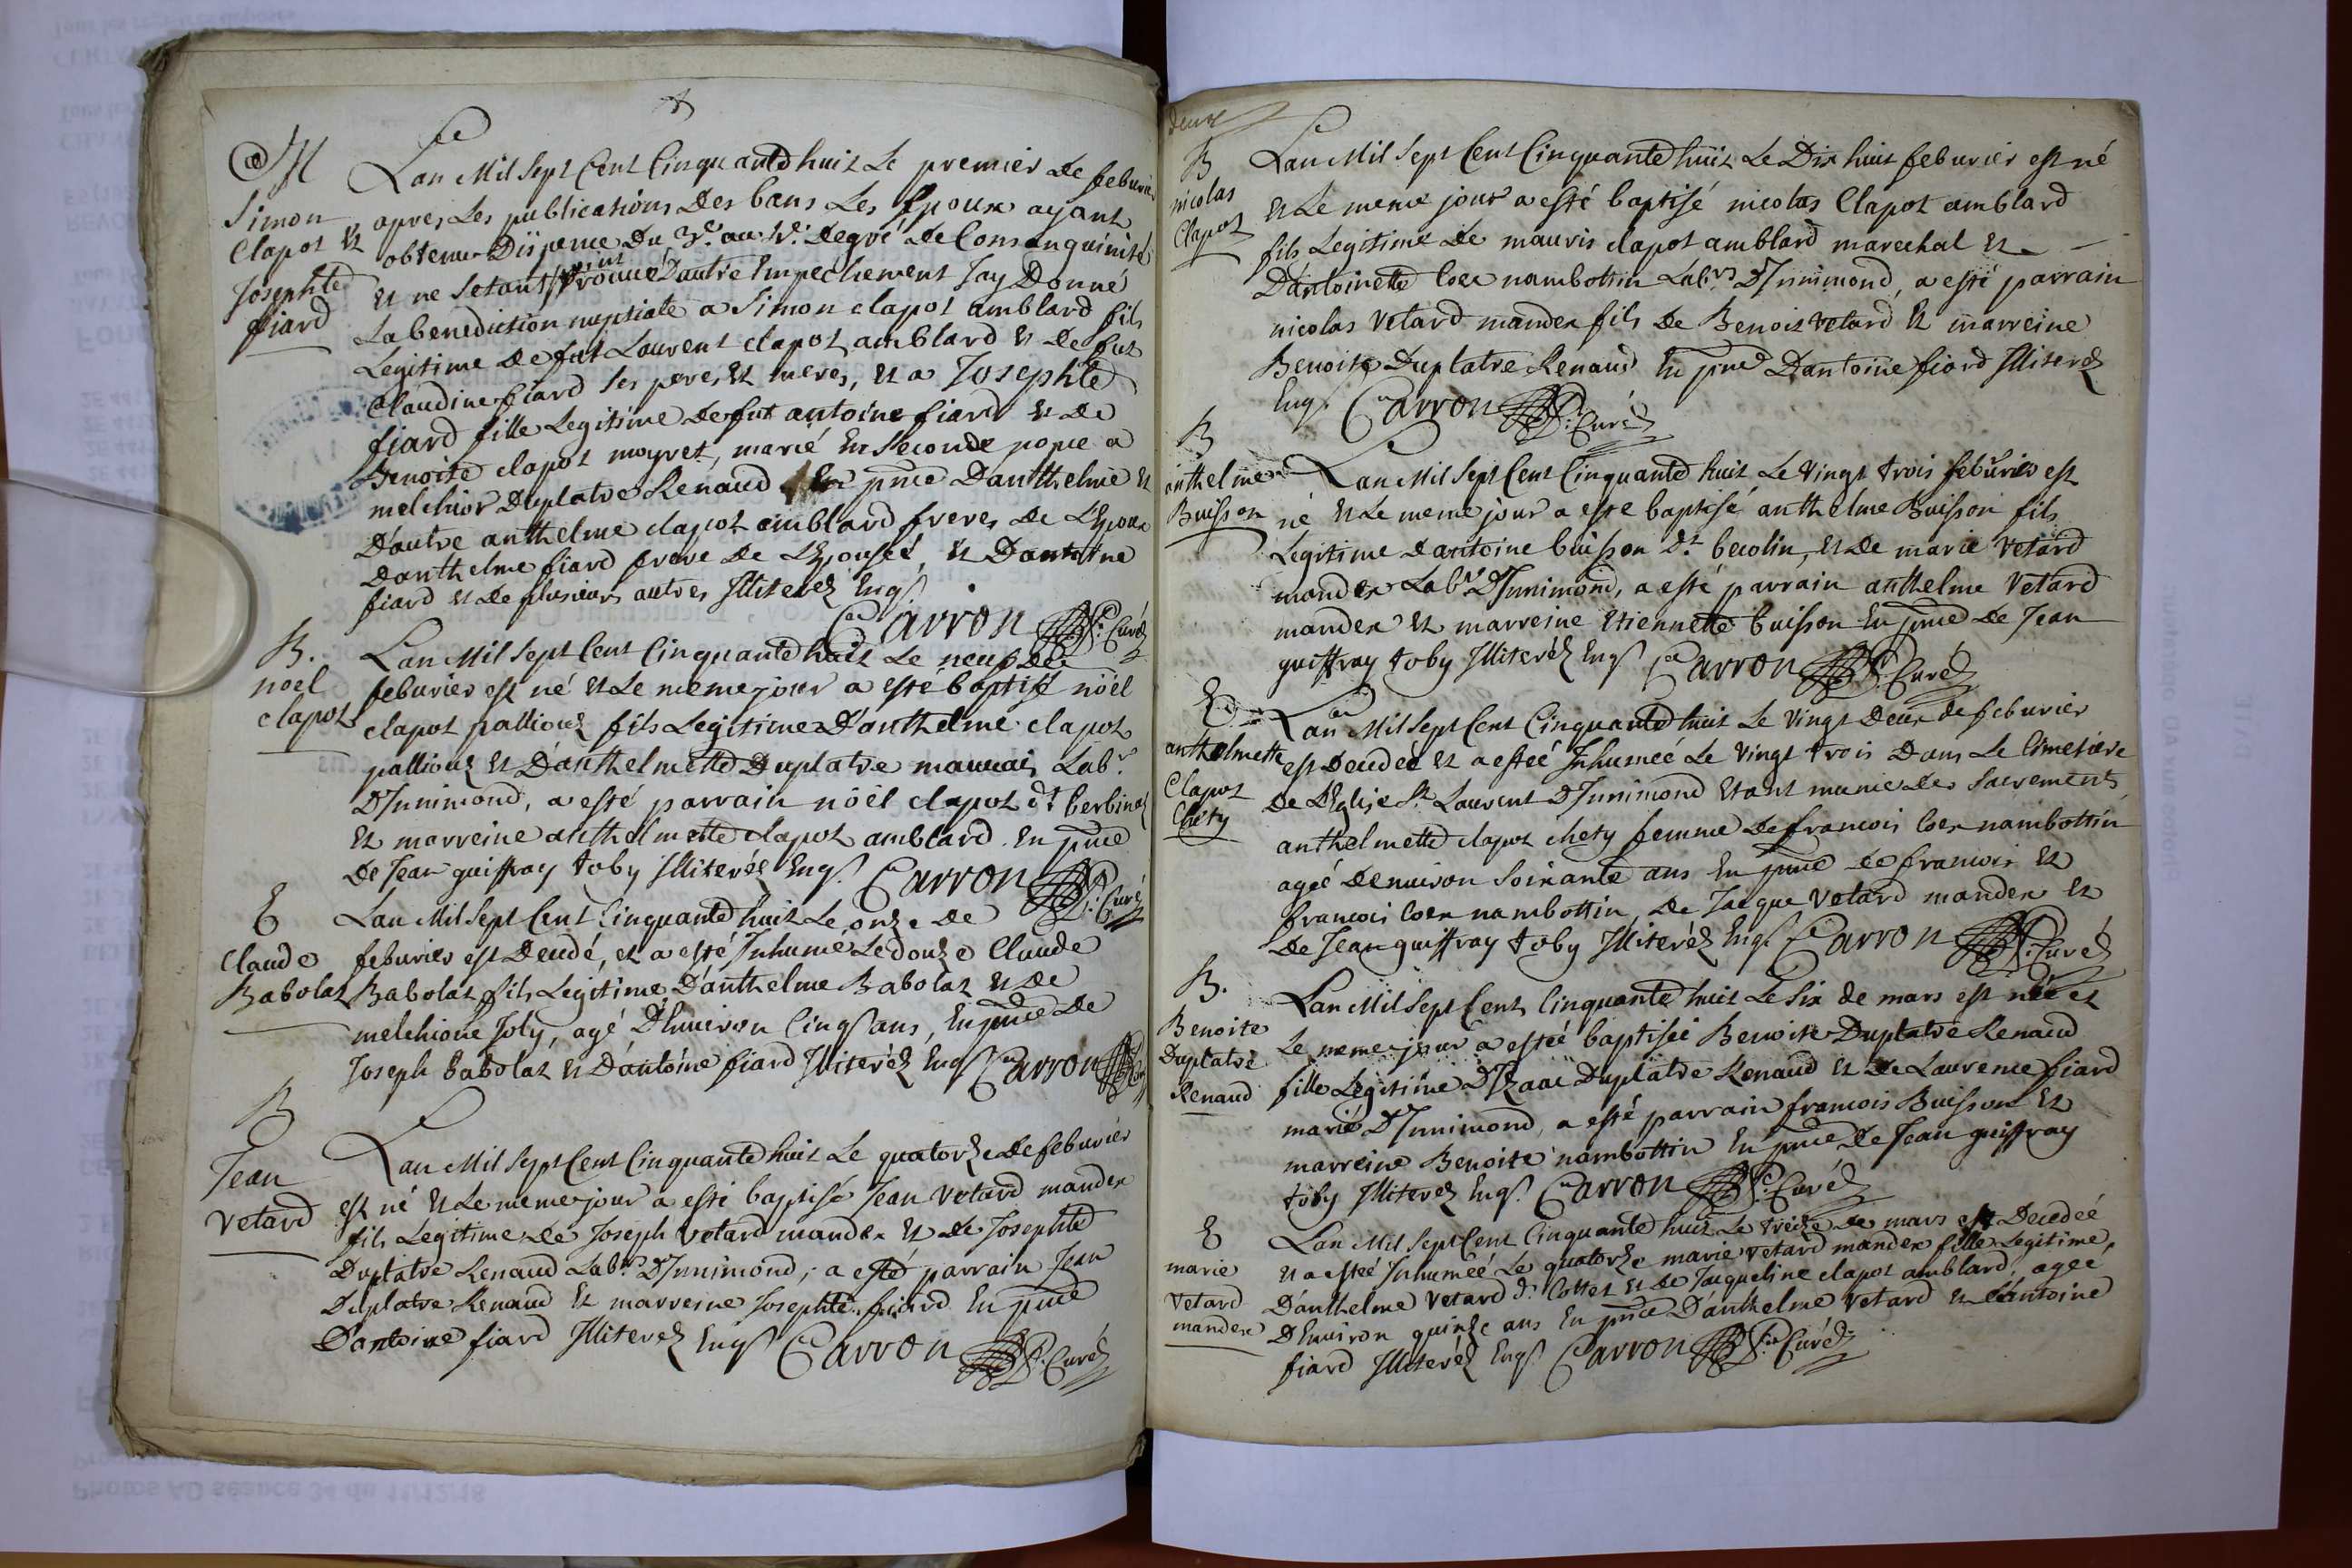 M
Simon
Clapot et
Josephte
fiard
Lan Mil Sept Cent Cinquante huit Le premier de feburier
apres Les publications Des bans Les Epoux ayant
obtenu Dispence Du 3e. au 4e. Degré de Consanguinité
et ne Setant point trouvé Dautre Empechement Jay Donné
La benediction nuptiale a Simon clapot amblard fils
Legitime de fut Laurent clapot amblard et De fut
Claudine fiard Ses peres et meres, et a Josephte
fiard fille Legitime de fut antoine fiard et de
Benoite clapot moyret, marié En Seconde nopce a
melchior Duplatre Renaud En pnce Danthelme et
Dautre anthelme clapot amblard freres De L'Epoux
Danthelme fiard frere De L'Epousée, et Dantoine
fiard et de plusieurs autres Illiterez Enqs
Carron Curé
B.
noel
clapot
Lan Mil Sept Cent Cinquante huit Le neuf De
feburier est né et Le meme jour a esté baptisé nöel
clapot pallioux fils Legitime Danthelme clapot
pallioux et Danthelmette Duplatre mauvais Labr.
D'Innimond, a esté parrain nöel clapot dt berbinet
et marreine anthelmette clapot amblard. En pnce
de Jean guiffray toby Illiterés Enqs. Carron Curé
E
Claude
Babolat
Lan Mil Sept Cent Cinquante huit Le onze De
feburier est Decedé, et a esté Inhumé Le douze Claude
Babolat fils Legitime Danthelme Babolat et de
melchione Joly, agé D'Environ Cinqs ans, En pnce De
Joseph babolat et Dantoine fiard Illiteréz Enqs Carron Curé
B
Jean
Vetard
Lan Mil Sept Cent Cinquante huit Le quatorze de feburier
est né et Le meme jour a esté baptisé Jean Vetard mander
fils Legitime de Joseph Vetard mander et de Josephte
Duplatre Renaud Labrs D'Innimond, a esté parrain Jean
Duplatre Renaud et marreine Josephte fiard En pnce
Dantoine fiard Illiterez Enqs Carron Curé
Deux
B
nicolas
Clapot
Lan Mil Sept Cent Cinquante huit Le Dix huit feburier est né
et Le meme jour a esté baptisé nicolas Clapot amblard
fils Legitime de mauris clapot amblard marechal et
Dantoinette loex nambottin Labrs D'Innimond, a esté parrain
nicolas Vetard mander fils De Benoit Vetard et marreine
Benoite Duplatre Renaud En pnce Dantoine fiard Illiterez
Enqs. Carron Curé
B
anthelme
Buisson
Lan Mil Sept Cent Cinquante huit Le Vingt trois feburier est
né et Le meme jour a esté baptisé anthelme Buisson fils
Legitime dantoine buisson dt becolin, et de marie Vetard
mander Labr D'Innimond, a esté parrain anthelme Vetard
mander et marreine Etiennette buisson En pnce de Jean
guiffray toby Illiteréz Enqs Carron Curé
E
anthelmette
Clapot
Chety
Lan Mil Sept Cent Cinquante huit Le Vingt Deux de feburier
est Decedeé et a estée Inhumeé Le Vingt trois Dans Le Cimetiere
De L'Eglise St. Laurent D'Innimond Etant munie des Sacrements
anthelmette clapot chety femme de francois loex nambottin
ageé denviron Soixante ans En pnce de francois et
francois loex nambottin, De Jacque Vetard mander et
De Jean guiffray toby Illiteréz Enqs Carron Curé
B.
Benoite
Duplatre
Renaud
Lan Mil Sept Cent Cinquante huit Le Six de mars est née et
Le meme jour a estée baptisée Benoite Duplatre Renaud
fille Legitime D'Izaac Duplatre Renaud et de Laurence fiard
marié D'Innimond, a esté parrain francois Buisson et
marreine Benoite nambottin En pnce de Jean guiffray
toby Illiterez Enqs. Carron Curé
E
marie
Vetard
mander
Lan Mil Sept Cent Cinquante huit Le treize de mars est Decedeé
et a esteé Inhumeé Le quatorze marie Vetard mander fille Legitime
Danthelme Vetard dt Cottet et de Jacqueline clapot amblard, agée
D'Environ quinze ans En pnce Danthelme Vetard et Dantoine
fiard Illiteréz Enqs. Carron Curé